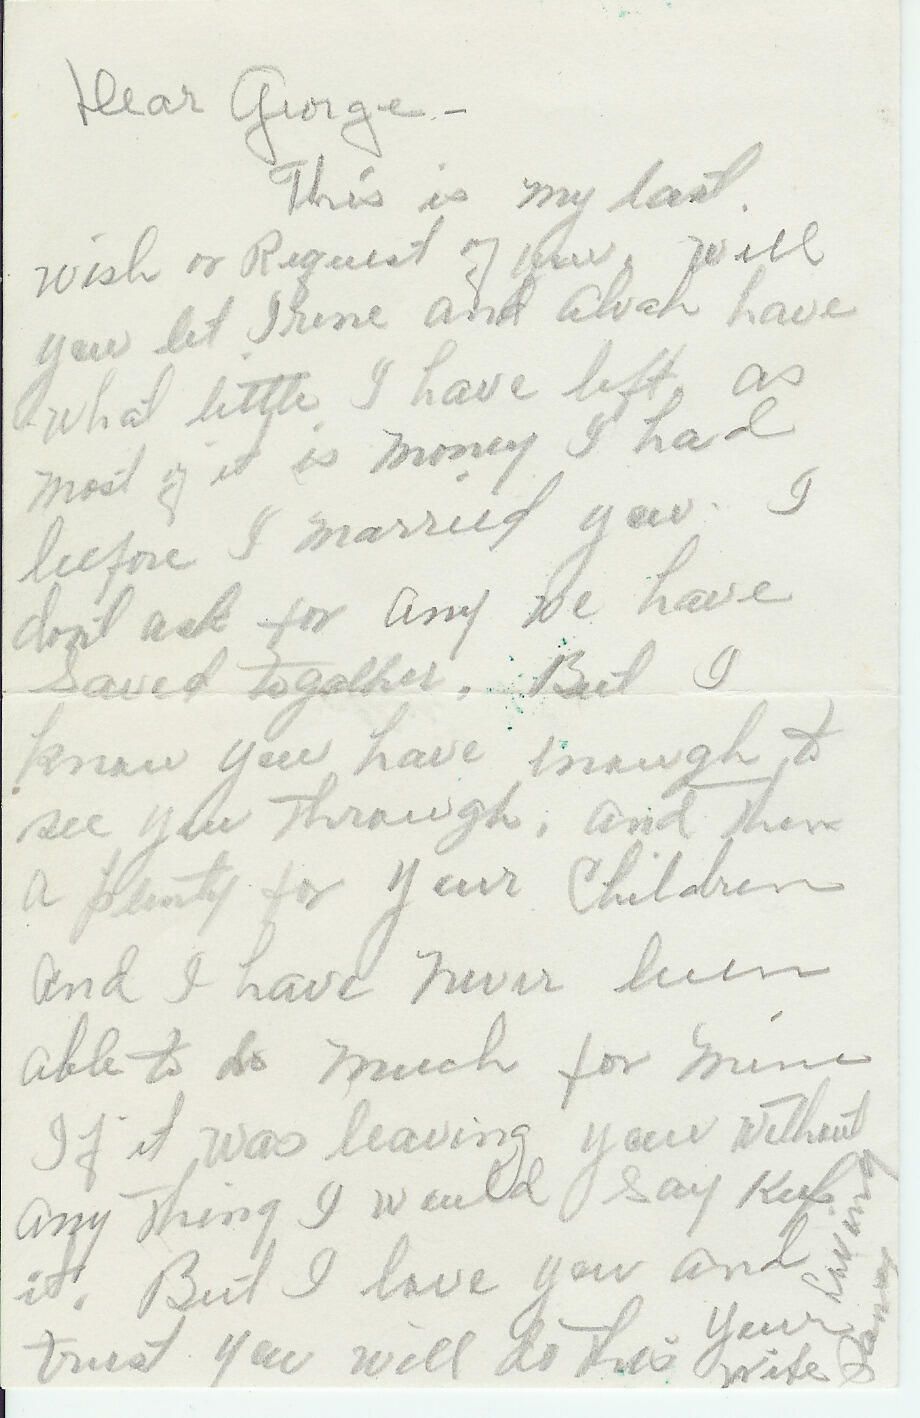 Dear George -
This is my last
wish or Request of you. Will
you let Irene and Alvah have
what little I have left, as
most of it is money I had
before I married you. I
don't ask for any we have
saved togather. But I
know you have enough to
see you through, and then
a plenty for your Children
and I have never been
able to do much for mine
If it was leaving you without
any thing I would say keep
it. But I love you and
trust you will do this
Your loving
wife